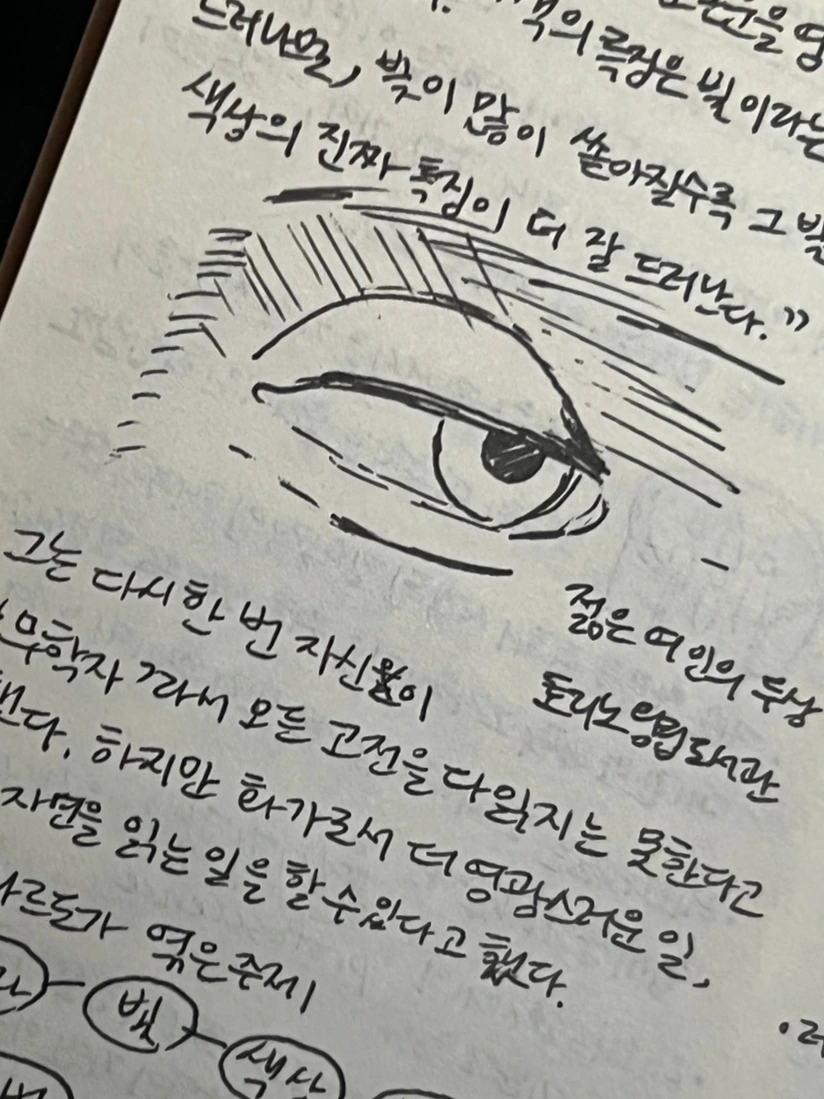 색의 특징은 빛이라는
드러나면, 빛이 많이 쏟아질수록 그 빛
색상의 진짜 특징이 더 잘 드러난다.”
젊은 여인의 두상
토리노 왕립 도서관
그는 다시 한 번 자신이
무학자라서 모든 고전을 다 읽지는 못한다고
했다. 하지만 화가로서 더 영광스러운 일,
자연을 읽는 일을 할 수 있다고 했다.
나르도가 엮은 주제
빛
색상